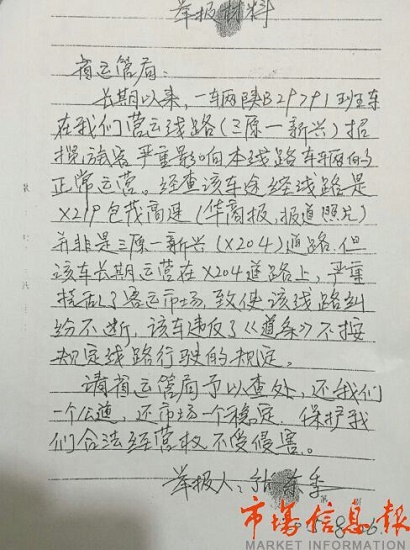 举报材料
省运管局:
长期以来,一车辆陕B29791班车
在我们营运线路(三原一新兴)招
揽旅客严重影响本线路车辆的
正常运营。经查该车途经线路是
X219包茂高速(华商报,报道照片)
并非是三原一新兴(X204)道路,但
该车长期运营在X204道路上,严重
扰乱了客运市场,致使该线路纠
纷不断,该车违反了《道条》不按
规定线路行驶的规定。
请省运管局予以查处,还我们
一个公道,还市场一个稳定,保护我
们合法经营权不受侵害。
举报人:
市场信息報
MARKET INFORMATION